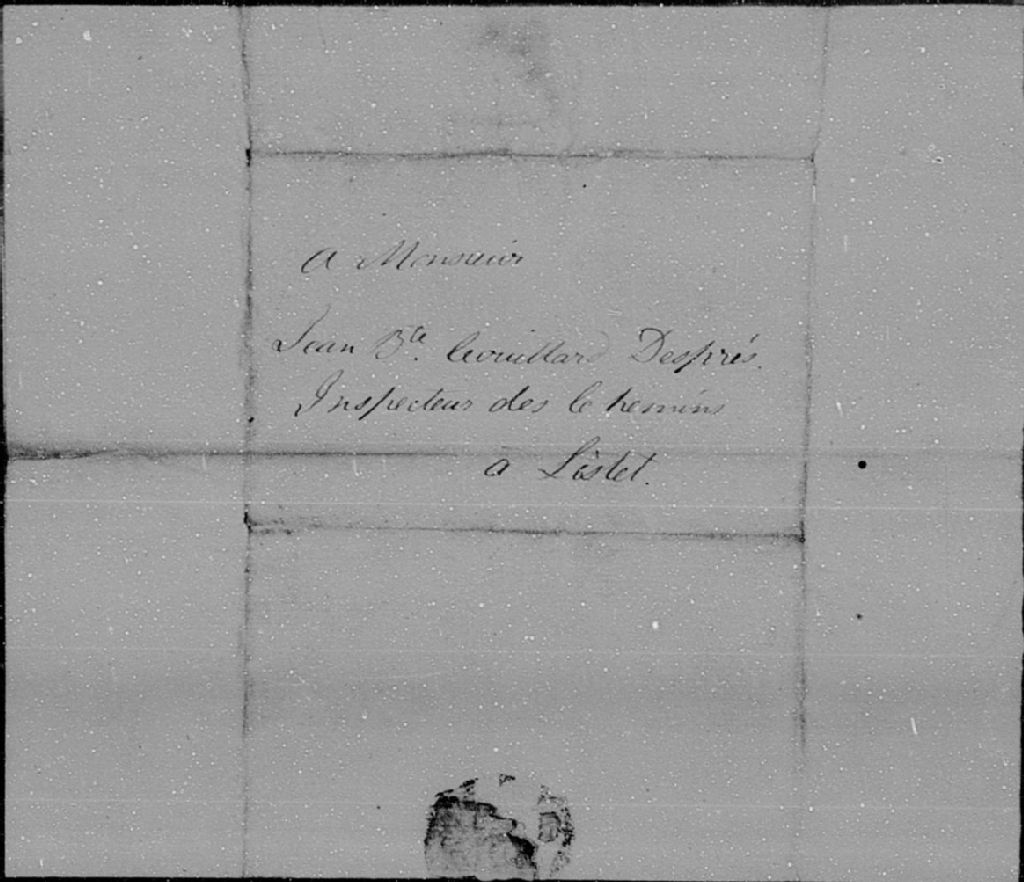 A Monsieur
Jean Bte. Couillard Després.
Inspecteur des Chemins
a Lislet.